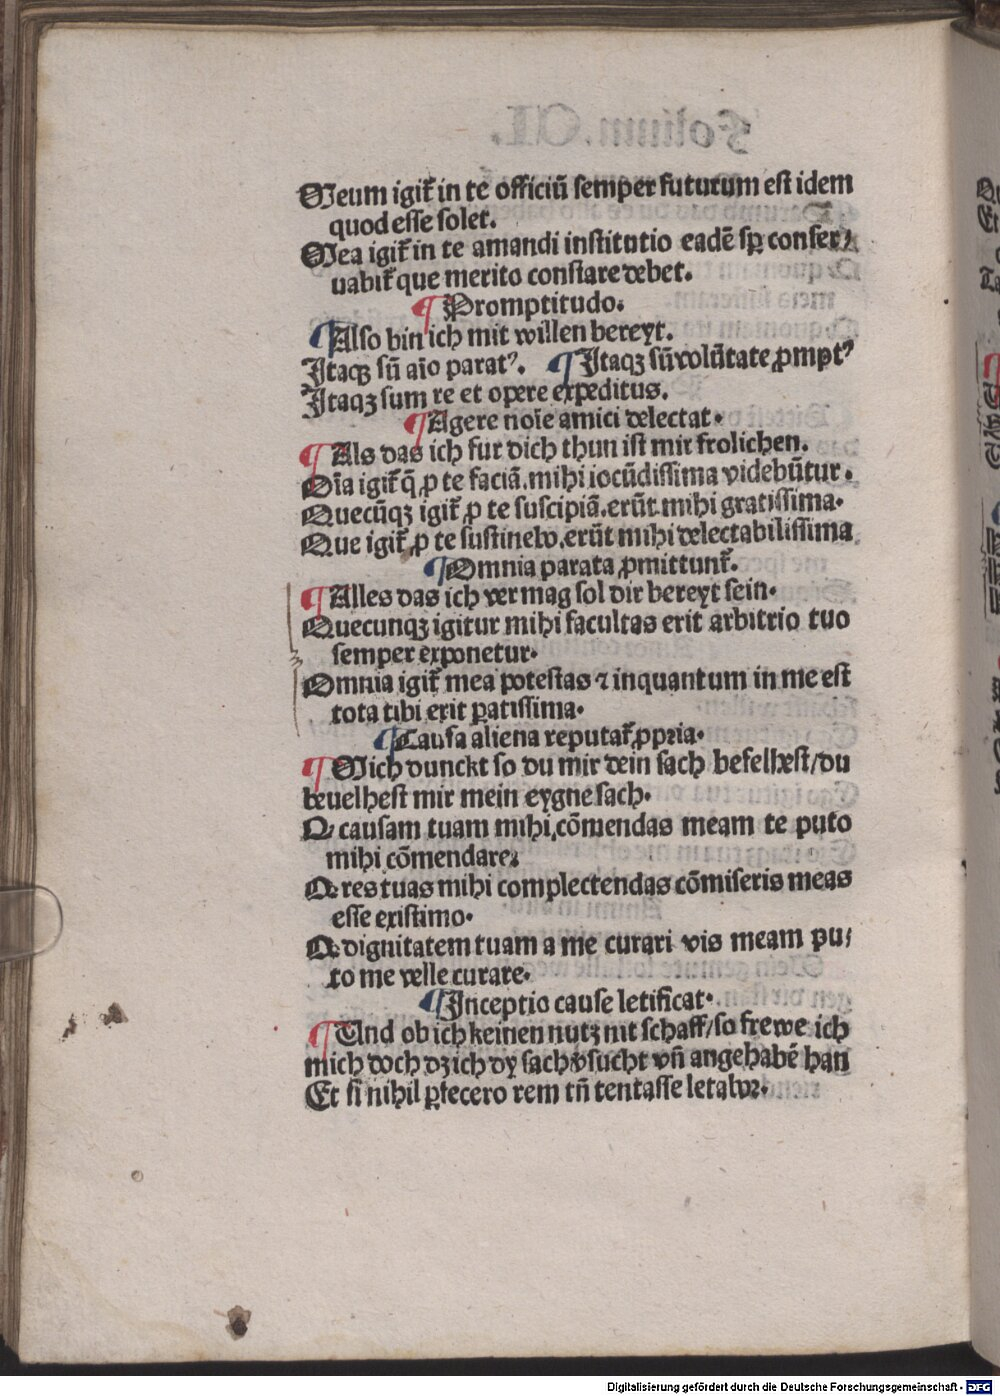 Meum igit᷑ in te officiū semper futurum est idem
quod esse solet.
Mea igit᷑ in te amandi institutio eadē sꝑ conser⸗
uabit᷑ que merito constare debet.
¶ Promptitudo.
¶ Also bin ich mit willen bereyt.
Itaqꝫ sū aīo paratꝰ. ¶ Itaqꝫ sū volūtate ꝓmptꝰ
Itaqꝫ sum re et opere expeditus.
¶ Agere noīe amici delectat.
¶ Als das ich fur dich thun ist mir frolichen.
Oīa igit᷑ q̄ ꝓ te faciā. mihi iocūdissima videbūtur.
Quecūqꝫ igit᷑ ꝓ te suscipiā. erūt mihi gratissima.
Que igit᷑ ꝓ te sustinebo. erūt mihi delectabilissima
¶ Omnia parata ꝓmittunt᷑.
¶ Alles das ich vermag sol dir bereyt sein.
Quecunqꝫ igitur mihi facultas erit arbitrio tuo
semper exponetur.
Omnia igit᷑ mea potestas ⁊ inquantum in me est
tota tibi erit ꝑatissima.
¶ Causa aliena reputat᷑ ꝓpria.
¶ Mich dunckt so du mir dein sach befelhest/du
beuelhest mir mein eygne sach.
Qn̄ causam tuam mihi cōmendas meam te puto
mihi cōmendare.
Qn̄ res tuas mihi complectendas cōmiseris meas
esse existimo.
Qn̄ dignitatem tuam a me curari vis meam pu⸗
to me velle curare.
¶ Inceptio cause letificat.
¶ Und ob ich keinen nutz nit schaff/so frewe ich
mich doch dz ich dy sach v̓sucht vn̄ angehabē han
Et si nihil ꝑfecero rem tn̄ tentasse letabor.
Digitalisierung gefördert durch die Deutsche Forschungsgemeinschaft - DFG